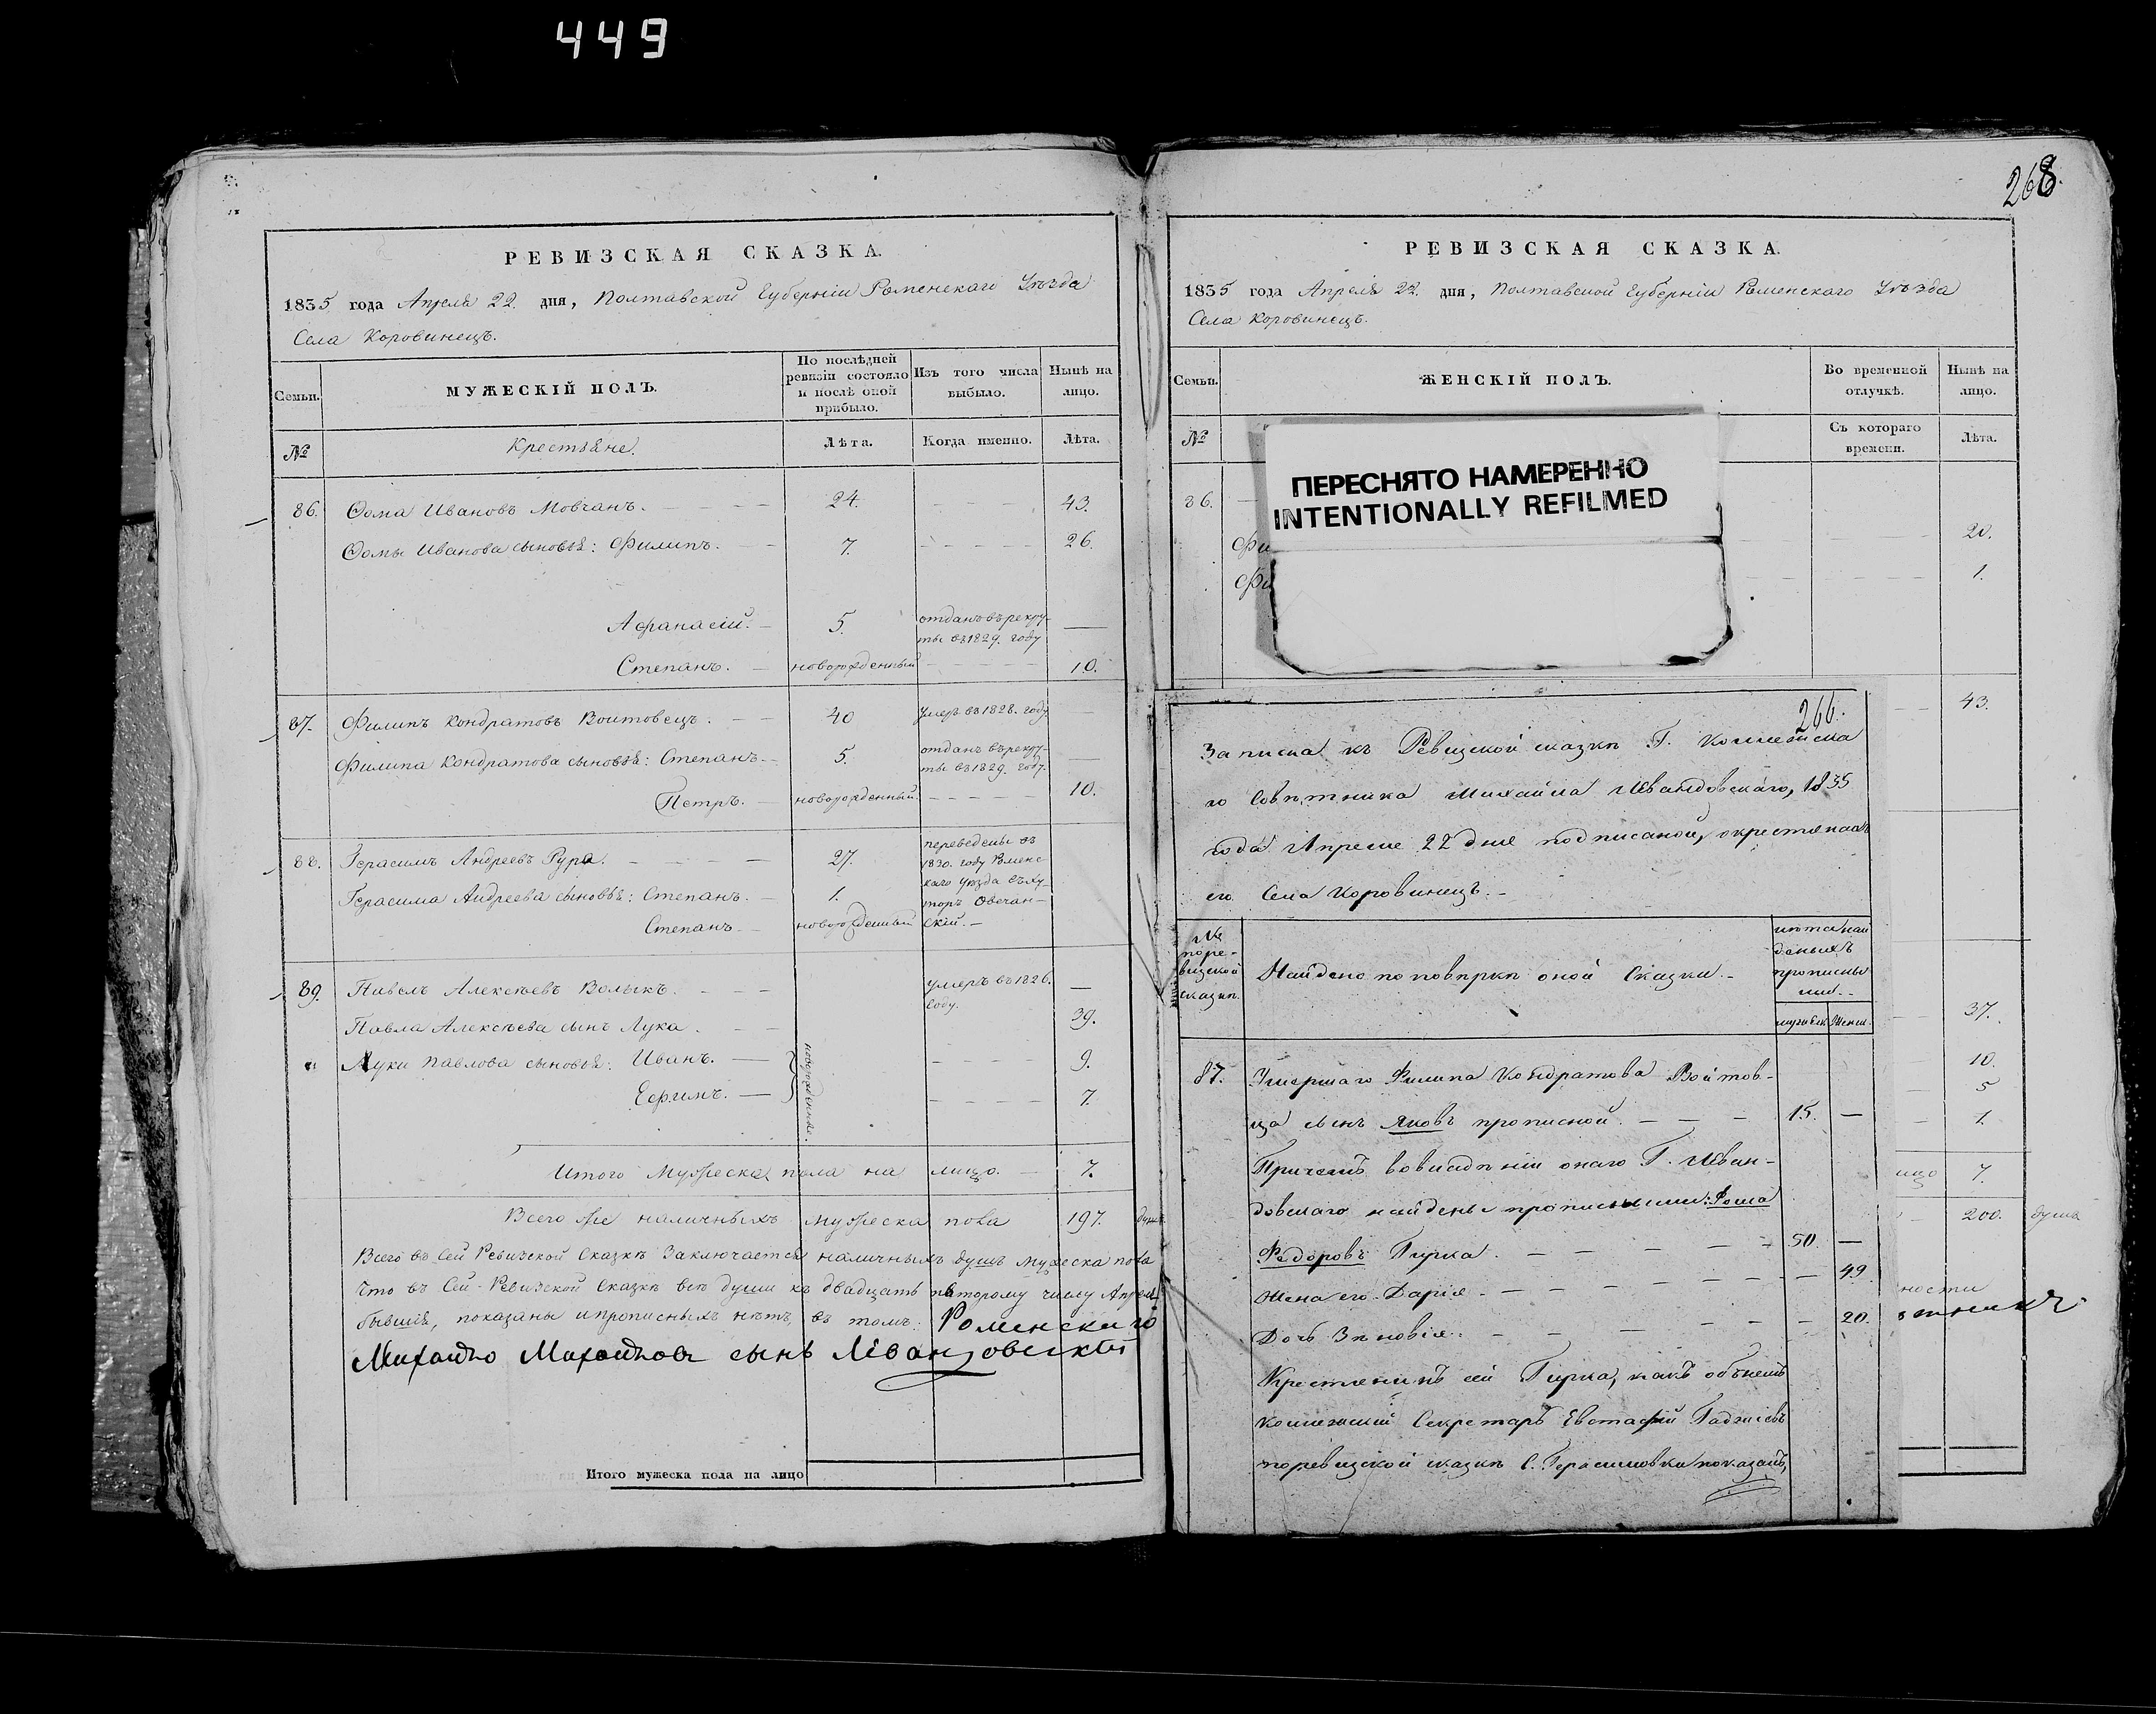 449
РЕВИЗСКАЯ СКАЗКА.
1835 года Апреля 22. дня, Полтавской Губерніи Роменскаго Уѣзда
Села Коровинецъ.
Семьи.
МУЖЕСКІЙ ПОЛЪ.
По послѣдней
ревизіи состояло
и послѣ оной
прибыло.
Изъ того числа
выбыло.
Нынѣ на
лицо.
№
Крестьяне.
Лѣта.
Когда именно.
Лѣта.
86. Фома Ивановъ Мовчанъ. 24. 43.
Фомы Иванова сыновья: Филипъ. 7. 26.
Афанасій. 5. отданъ въ рекру-
ты въ 1829. году
Степанъ. новорожденный 10.
87. Филипъ Кондратовъ Воитовецъ. 40 умеръ въ 1828. году
Филипа Кондратова сыновья: Степанъ. 5. отданъ въ рекру-
ты въ 1829. году.
Петръ. новорожденный. 10.
88. Герасимъ Андреевъ Гура. 27. переведены въ
1830. году Роменс-
каго уѣзда въ ху-
торъ Овечан-
скій.
Герасима Андреева сыновья: Степанъ. 1.
Степанъ новорожденный
89. Павелъ Алексѣевъ Волыкъ. умеръ въ 1826.
году.
Павла Алексѣева сынъ Лука. 39.
Луки Павлова сыновья: Иванъ. 9.
Ефимъ. 7.
новорожденные.
Итого Мужеска пола на лицо. 7.
Всего же наличныхъ мужеска пола 197. душъ
Всего въ Сей Ревизской Сказкѣ Заключается наличныхъ душъ мужеска пола
Что въ Сей Ревизской Сказкѣ всѣ души къ двадцать второму числу Апреля
бывшія, показаны и прописныхъ нѣтъ, въ томъ: Роменскаго
Михайло Михайловъ сынъ Левандовскій
Итого мужеска пола на лицо
268.
РЕВИЗСКАЯ СКАЗКА.
1835 года Апреля 22. дня, Полтавской Губерніи Роменскаго Уѣзда
Села Коровинецъ.
Семьи.
ЖЕНСКІЙ ПОЛЪ.
Во временной
отлучкѣ.
Нынѣ на
лицо.
№
Съ котораго
времени.
Лѣта.
ПЕРЕСНЯТО НАМЕРЕННО
INTENTIONALLY REFILMED
86.
Фи 20.
Фи 1.
43.
37.
10.
5
1.
ицо 7.
200. душъ
ности
266.
Записка къ Ревизской сказкѣ Г. Коллежска
го Совѣтника Михайла Левандовскаго, 1835
года Апреля 22 дня подписаной, о крестьянахъ
его Села Коровинецъ.
№
по ре-
визской
сказкѣ.
Найдено по повѣркѣ оной Сказки.
лѣта най
деныхъ
прописны
ми.
мужеск. Женск.
87. Умершаго Филипа Кондратова Войтов-
ца сынъ Яковъ прописной. 15.
Причемъ во владѣніи онаго Г. Леван-
довскаго найдены прописными: Фома
Федоровъ Гирка. 50.
Жена его Дарія. 49
Дочь Зѣновія. 20.
Крестьянинъ сей Гирка, какъ объяснилъ
коллежскій Секретарь Евстафій Гаджіевъ
по ревизской сказкѣ С. Герасимовки показанъ,